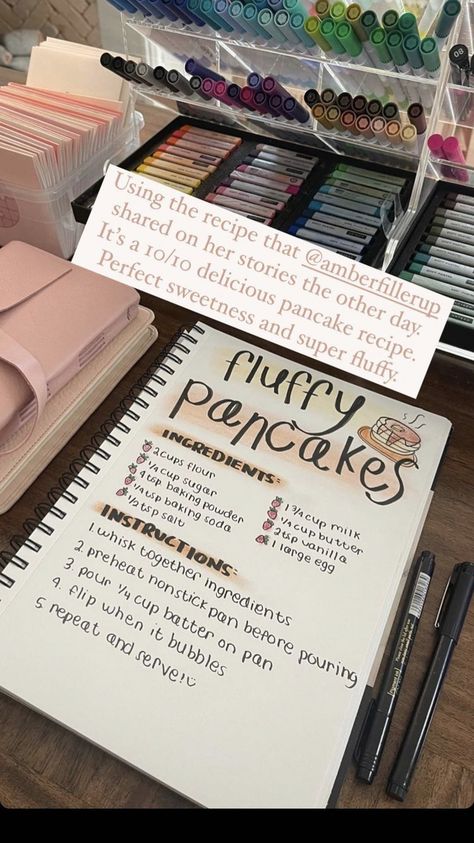 Using the recipe that @amberfillerup
shared on her stories the other day.
It's a 10/10 delicious pancake recipe.
Perfect sweetness and super fluffy.
fluffy
pancakes
INGREDIENTS:
2 cups flour
1/4 cup sugar
4 tsp baking powder
1/4 tsp baking soda
1/2 tsp salt
1 3/4 cup milk
1/4 cup butter
2 tsp vanilla
1 large egg
INSTRUCTIONS:
1. whisk together ingredients
2. preheat nonstick pan before pouring
3. pour 1/4 cup batter on pan
4. flip when it bubbles
5. repeat and serve!